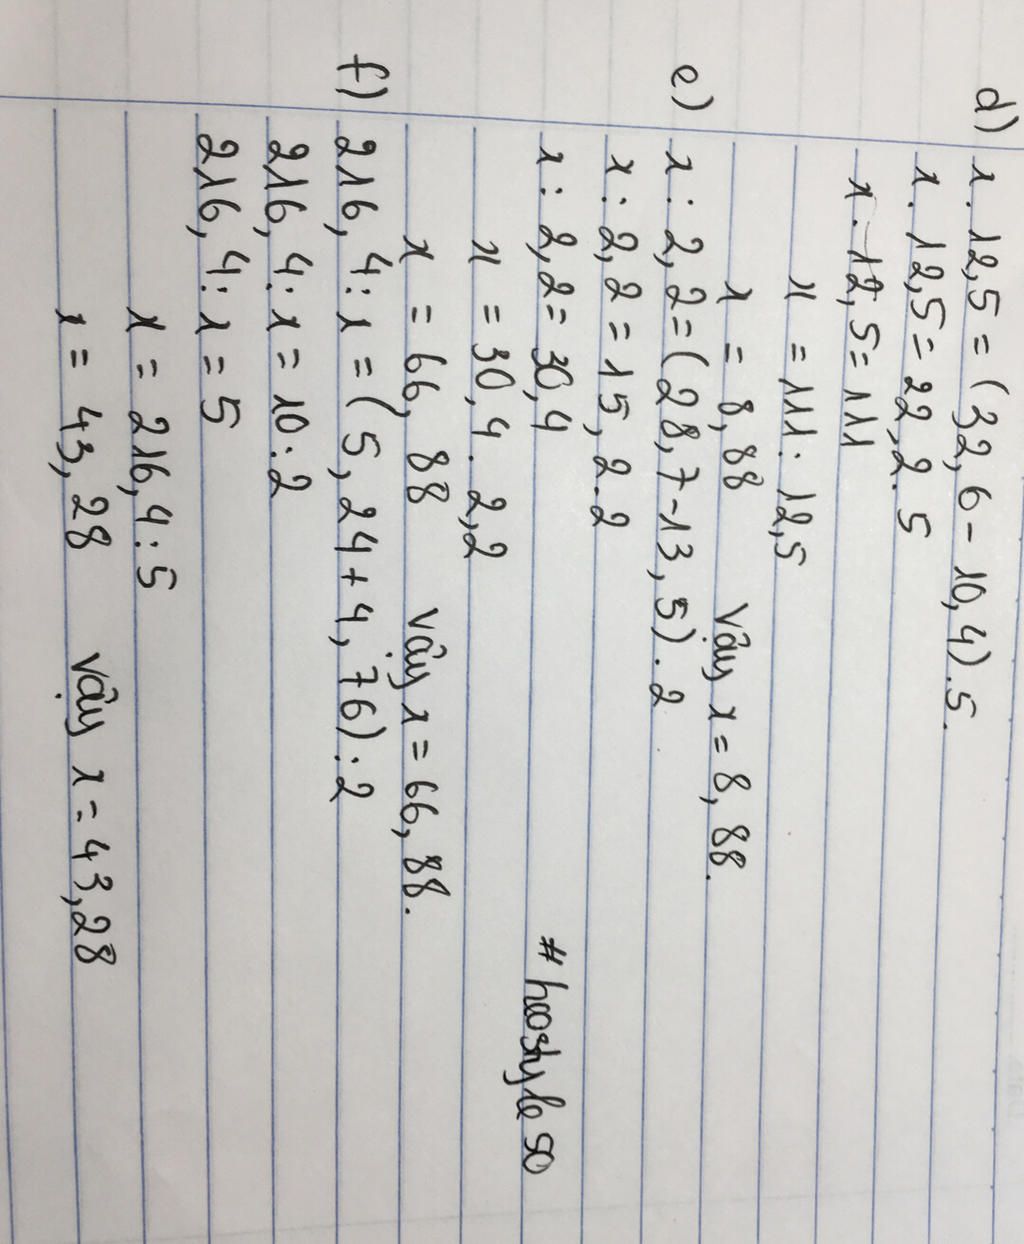 d) x. 12,5 = (32,6 - 10,4).5.
x. 12,5 = 22,2. 5
x. 12,5 = 111
x = 111: 12,5
x = 8,88 Vậy x = 8,88.
e) x: 2,2 = (28,7-13,5).2
x: 2,2 = 15,2.2
x: 2,2 = 30,4
x = 30,4. 2,2
x = 66,88 Vậy x = 66,88.
f) 216,4: x = (5,24+4,76):2
216,4: x = 10:2
216,4: x = 5
x = 216,4:5
x = 43,28 Vậy x = 43,28